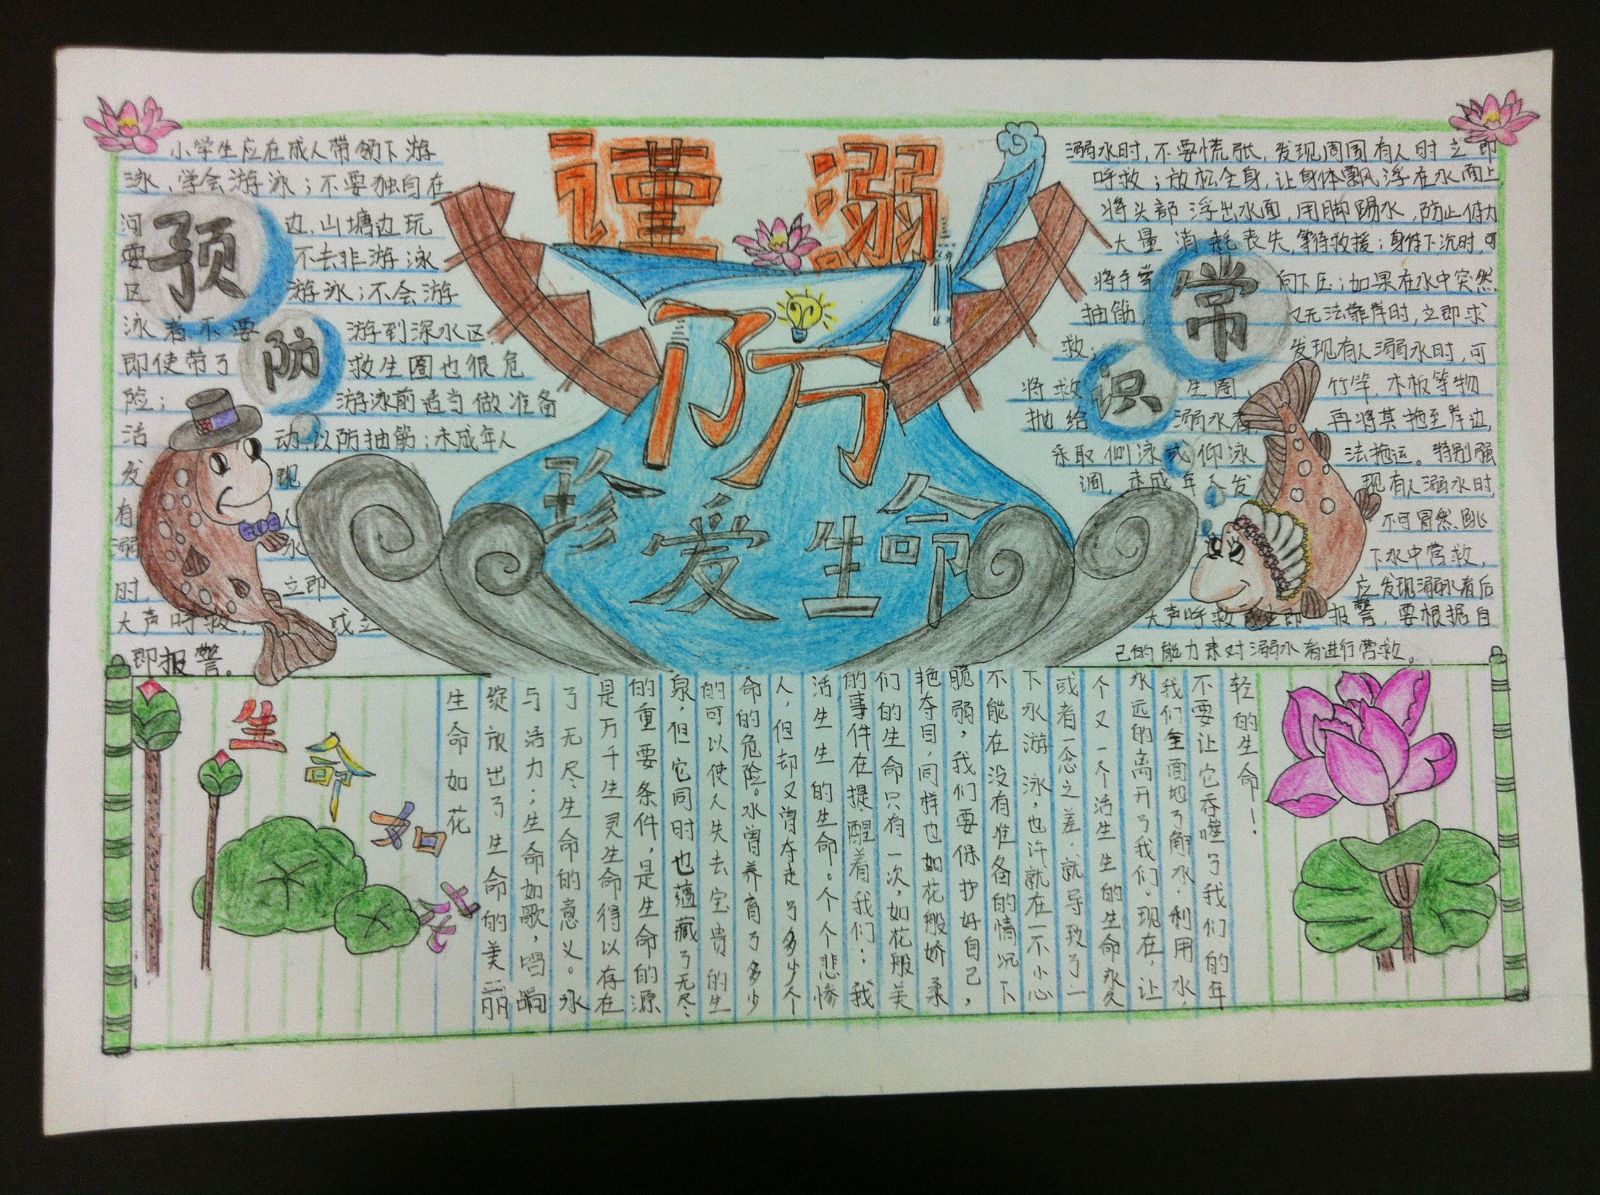 谨溺
防
珍爱生命
预防
小学生应在成人带领下游
泳、学会游泳；不要独自在
河边、山塘边玩
耍不去非游泳
区游泳；不会游
泳者不要游到深水区，
即使带了救生圈也很危
险；游泳前适当做准备
活动，以防抽筋；未成年人
发现
有人
溺水
时，立即
大声呼救，或立
即报警。
常识
溺水时，不要慌张，发现周围有人时立即
呼救；放松全身，让身体飘浮在水面上，
将头部浮出水面，用脚踢水，防止体力
大量消耗丧失，等待救援；身体下沉时，可
将手掌向下压；如果在水中突然
抽筋，又无法靠岸时，立即求
救；发现有人溺水时，可
将救生圈、竹竿、木板等物
抛给溺水者，再将其拖至岸边，
采取侧泳或仰泳法拖运。特别强
调，未成年人发现有人溺水时，
不可冒然跳
下水中营救，
应发现溺水者后
大声呼救或立即报警，要根据自
己的能力来对溺水者进行营救。
生命如花
生命如花
绽放出了生命的美丽
与活力；生命如歌，唱响
了无尽生命的意义。水
是万千生灵生命得以存在
的重要条件，是生命的源
泉，但它同时也蕴藏了无尽
的可以使人失去宝贵的生
命的危险。水曾养育了多少
人，但却又曾夺走了多少个
活生生的生命。个个悲惨
的事件在提醒着我们：我
们的生命只有一次，如花般美
艳夺目，同样也如花般娇柔
脆弱，我们要保护好自己，
不能在没有准备的情况下
下水游泳，也许就在一不小心
或者一念之差，就导致了一
个又一个活生生的生命永久
永远的离开了我们。现在，让
我们全面地了解水，利用水
不要让它吞噬了我们的年
轻的生命！